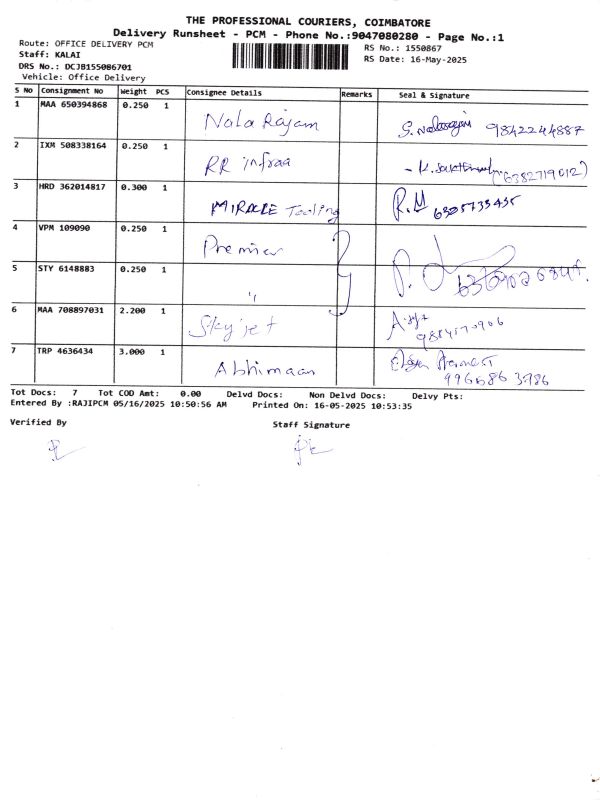 THE PROFESSIONAL COURIERS, COIMBATORE
Delivery Runsheet - PCM - Phone No.:9047080280 - Page No.:1
Route: OFFICE DELIVERY PCM
RS No.: 1550867
Staff: KALAI
RS Date: 16-May-2025
DRS No.: DCJB155086701
Vehicle: Office Delivery
S No Consignment No Weight PCS Consignee Details Remarks Seal & Signature
1 MAA 650394868 0.250 1 Nala Rajam 9842244887
2 IXM 508338164 0.250 1 RR infraa (6382719012)
3 HRD 362014817 0.300 1 MIRACLE Tooling R.M 6305733435
4 VPM 109090 0.250 1 Premier
5 STY 6148883 0.250 1 "
6 MAA 708897031 2.200 1 Skyjet
7 TRP 4636434 3.000 1 Abhimaan
Tot Docs: 7 Tot COD Amt: 0.00 Delvd Docs: Non Delvd Docs: Delvy Pts:
Entered By :RAJIPCM 05/16/2025 10:50:56 AM Printed On: 16-05-2025 10:53:35
Verified By Staff Signature